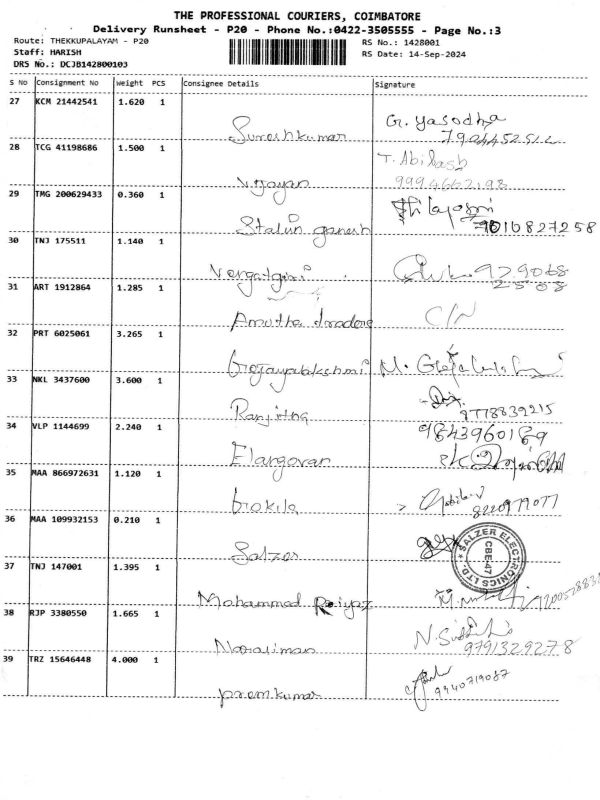 THE PROFESSIONAL COURIERS, COIMBATORE
Delivery Runsheet - P20 - Phone No.:0422-3505555 - Page No.:3
Route: THEKKUPALAYAM - P20
RS No.: 1428001
Staff: HARISH
RS Date: 14-Sep-2024
DRS No.: DCJB142800103
S No Consignment No Weight PCS Consignee Details Signature
27 KCM 21442541 1.620 1
Sureshkumar G. Yasodha
7904452512
28 TCG 41198686 1.500 1
Vijayan T. Abinash
9994662198
29 TMG 200629433 0.360 1
Stalin ganesh 9010827258
30 TNJ 175511 1.140 1
979068
2508
31 ART 1912864 1.285 1
Amutha C/N
32 PRT 6025061 3.265 1
M.
33 NKL 3437600 3.600 1
Ranjitha 8778839215
34 VLP 1144699 2.240 1
9843960189
Elangovan
35 MAA 866972631 1.120 1
Gokila
36 MAA 109932153 0.210 1
Salzer SALZER ELECTRONICS LTD. CBE-47
37 TNJ 147001 1.395 1
Mohammed Raiyaz
38 RJP 3380550 1.665 1
Narasiman
9791329278
39 TRZ 15646448 4.000 1
premkumar 9940719087